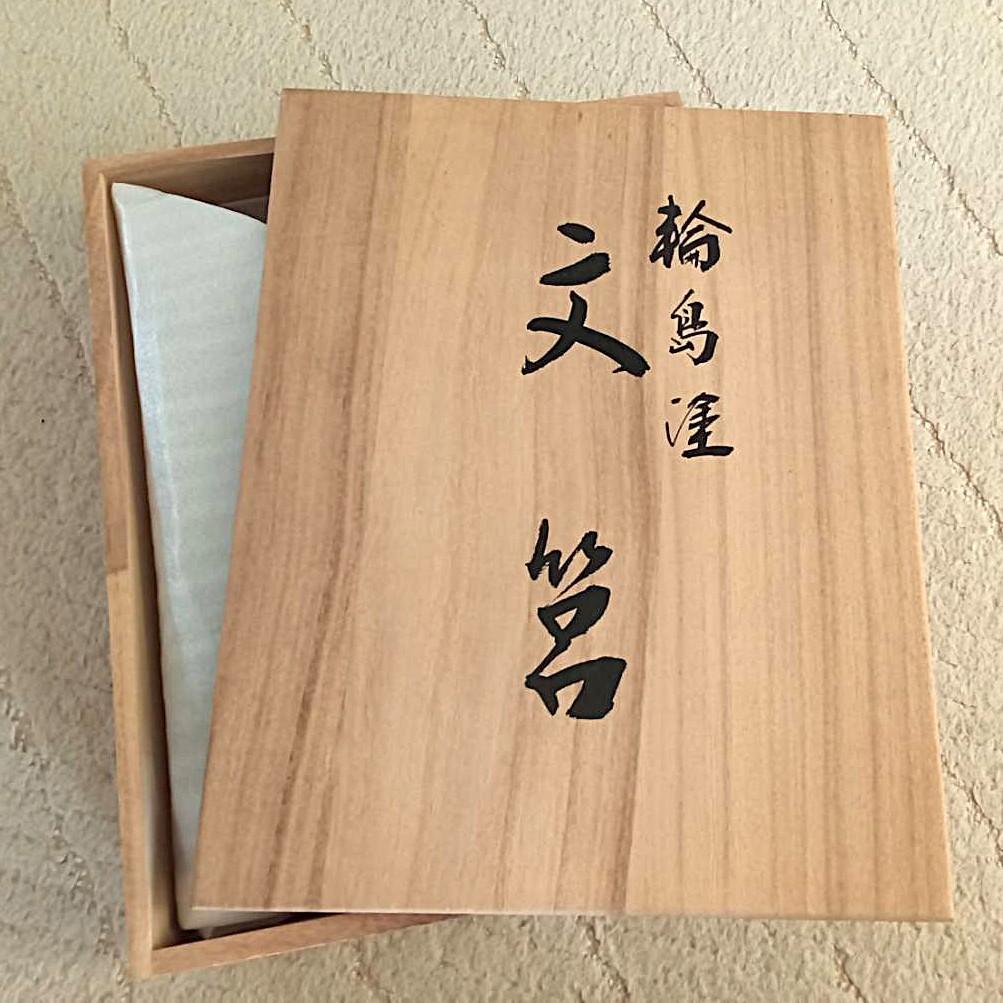 輪島塗
文筥